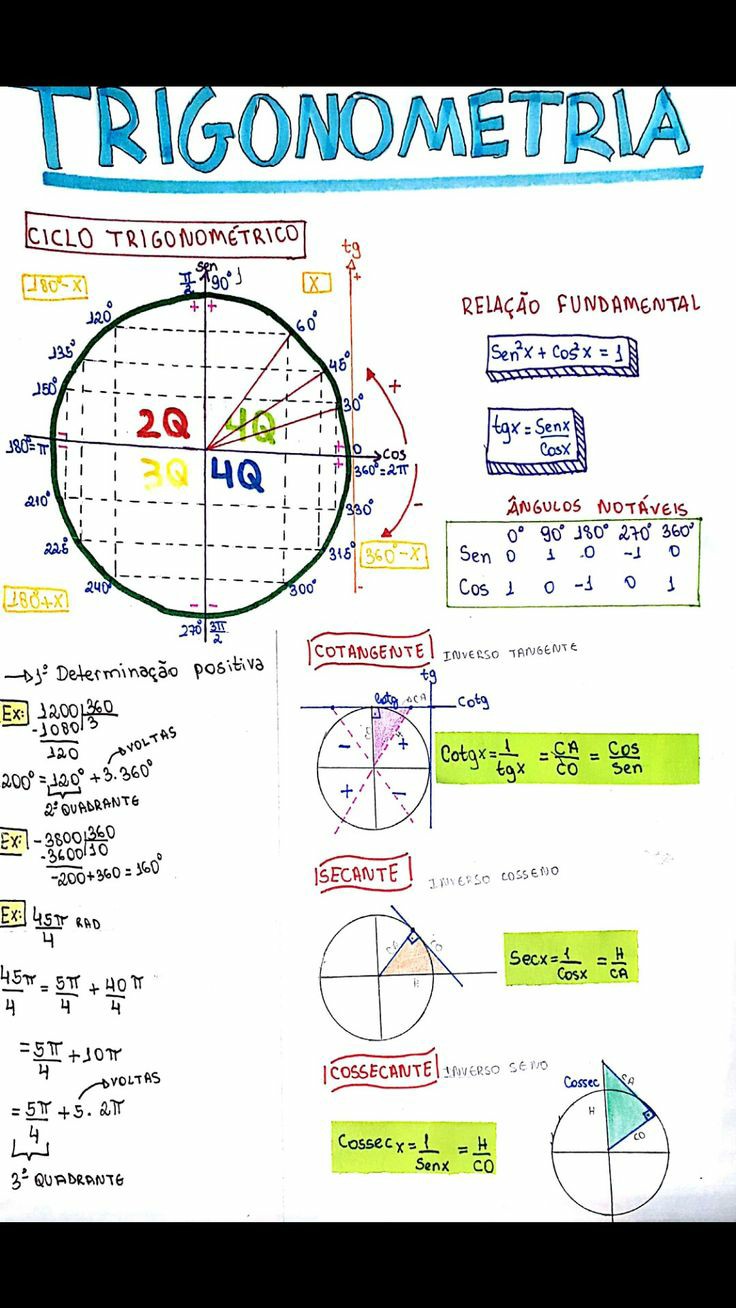 TRIGONOMETRIA
CICLO TRIGONOMÉTRICO
tg
sen
180°-X
π/2
90°
1
X
+
+ +
120°
60°
135°
45°
150°
30°
+
2Q
4Q
180°=π
-
-
+
+
0
cos
360°=2π
3Q
4Q
210°
330°
-
225°
315°
360°-X
180°+X
240°
300°
-
- -
270°
3π/2
RELAÇÃO FUNDAMENTAL
Sen²x + Cos²x = 1
tgx = Senx/Cosx
ÂNGULOS NOTÁVEIS
0° 90° 180° 270° 360°
Sen 0 1 0 -1 0
Cos 1 0 -1 0 1
→1° Determinação positiva
Ex: 1200 360
-1080 3
120
VOLTAS
200° = 120° + 3.360°
2° QUADRANTE
Ex: -3800 360
-3600 10
-200+360 = 160°
Ex: 45π/4 RAD
45π/4 = 5π/4 + 40π/4
= 5π/4 + 10π
VOLTAS
= 5π/4 + 5. 2π
3° QUADRANTE
COTANGENTE INVERSO TANGENTE
tg
Cotg CA
Cotg
- +
+ -
Cotgx = 1/tgx = CA/CO = Cos/Sen
SECANTE INVERSO COSSENO
CA CO
H
Secx = 1/Cosx = H/CA
COSSECANTE INVERSO SENO
Cossec
CA
H
CO
Cossec x = 1/Senx = H/CO